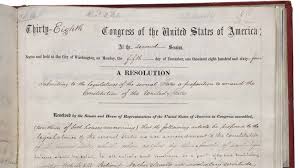 Thirty-Eighth Congress of the United States of America;
At the second Session,
Begun and held at the City of Washington, on Monday, the fifth day of December, one thousand eight hundred and sixty-four
A RESOLUTION
Submitting to the legislatures of the several States a proposition to amend the
Constitution of the United States.
Resolved by the Senate and House of Representatives of the United States of America in Congress assembled,
(two thirds of both houses concurring) that the following article be proposed to the
legislatures of the several States as an amendment to the Constitution